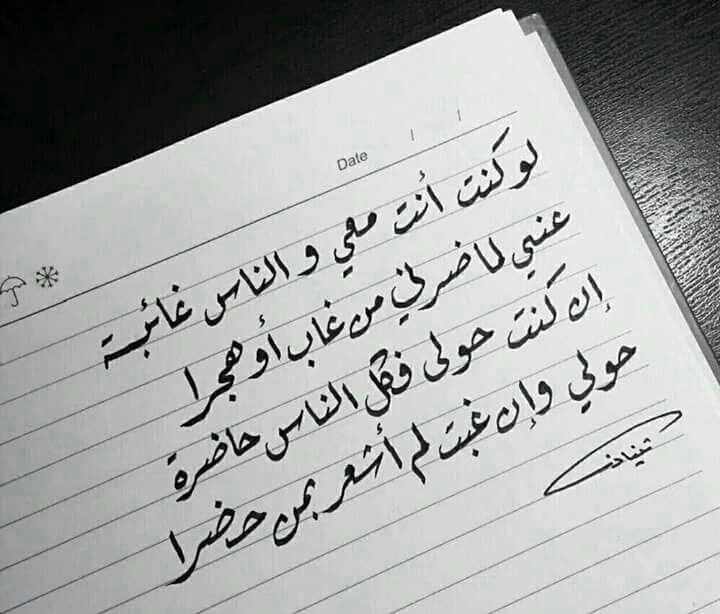 Date
لو كنت أنت معي و الناس غائبة
عني لما ضرني من غاب أو هجرا
إن كنت حولي فكل الناس حاضرة
حولي وإن غبت لم أشعر بمن حضرا